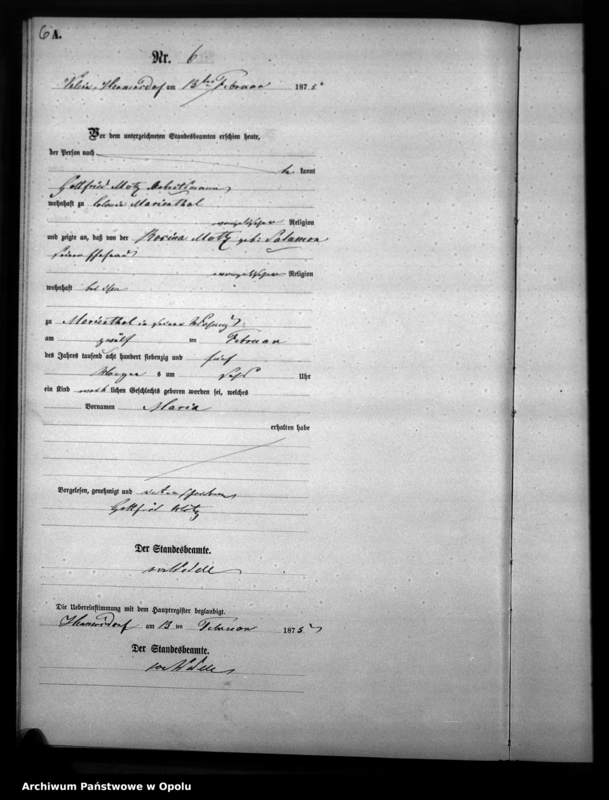 6 A.
Nr. 6
Hennersdorf am 13ten Februar 1875
Vor dem unterzeichneten Standesbeamten erschien heute,
der Person nach
be kannt
Gottfried Motz
wohnhaft zu Marienthal
evangelischer Religion
und zeigte an, daß von der Rosina Motz geb: Salamon
seiner Ehefrau
evangelischer Religion
wohnhaft bei ihm
zu Marienthal in seiner Wohnung
am zwölf ten Februar
des Jahres tausend acht hundert siebenzig und fünf
Morgens um sechs Uhr
ein Kind weib lichen Geschlechts geboren worden sei, welches
Vornamen Maria
erhalten habe
Vorgelesen, genehmigt und unterschrieben
Gottfried Motz
Der Standesbeamte.
Die Uebereinstimmung mit dem Hauptregister beglaubigt.
Hennersdorf am 13 ten Februar 1875
Der Standesbeamte.
Archiwum Państwowe w Opolu